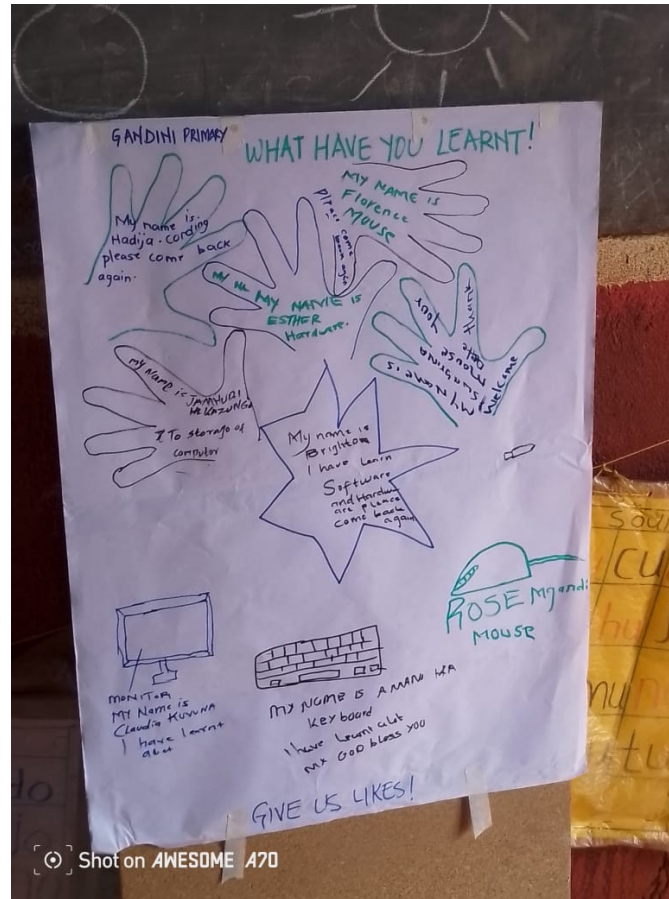 GANDINI PRIMARY
WHAT HAVE YOU LEARNT!
My name is
Hadija. cording
please come back
again.
MY NAME IS
Florence
MOUSE
please come
back again
MY NAME IS
ESTHER
Hardware.
MY NAME IS
SWABRINA
MOUSE
thank
your
Welcome
my name is
JAMHURI
To storage of
computer
My name is
Brighton
I have learn
Software
and Hardw
are please
come back
again
ROSE Mgandi
MOUSE
MONITOR
MY Name is
Claudia KUVUNA
I have learnt
alot
MY NAME IS AMANI
KEYboard
I have learnt alot
MY GOD bless you
GIVE US LIKES!
sou
cu
hu
mu
tu
do
Shot on AWESOME A70